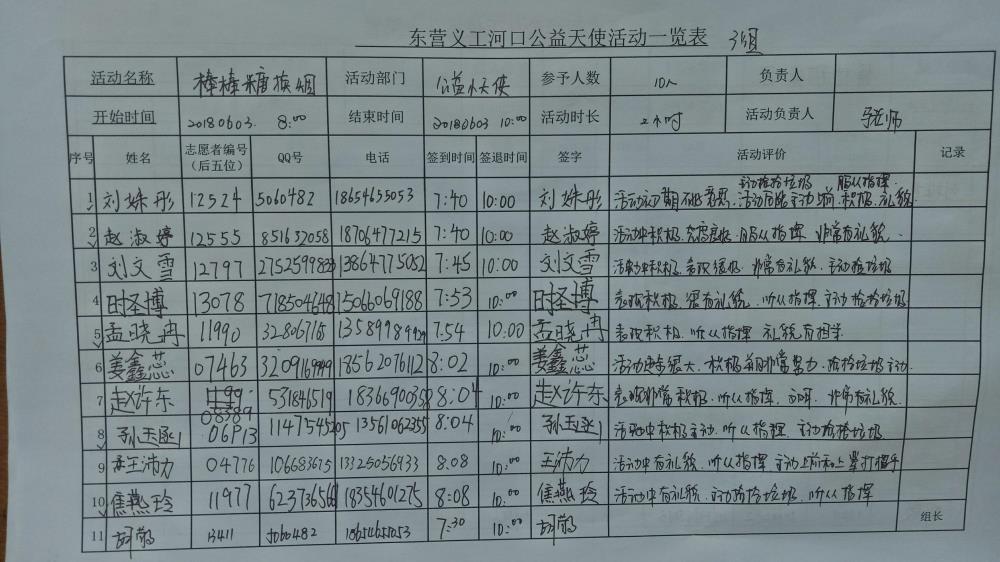 东营义工河口公益天使活动一览表 3组
活动名称 棒棒糖族4组 活动部门 公益小天使 参予人数 10人 负责人
开始时间 20180603. 8:00 结束时间 20180603 10:00 活动时长 2小时 活动负责人 老师
序号 姓名 志愿者编号(后五位) QQ号 电话 签到时间 签退时间 签字 活动评价 记录
主动捡捡垃圾 服从指挥
1 刘姝彤 12524 5060482 18654655053 7:40 10:00 刘姝彤 活动初期不好意思.活动后能主动上前.积极.礼貌
2 赵淑婷 12555 851632058 18706477215 7:40 10:00 赵淑婷 活动中积极.态度良好.服从指挥 非常有礼貌.
3 刘文雪 12797 2752599820 13864775052 7:45 10:00 刘文雪 活动中积极.表现很好.非常有礼貌.主动捡垃圾
4 时圣博 13078 718504648 15066069188 7:53 10:00 时圣博 表现积极.很有礼貌.听从指挥.主动捡捡垃圾
5 孟晓冉 11990 32806718 7.54 10.00 孟晓冉 表现积极.听从指挥 礼貌
6 姜鑫蕊 07463 18562076112 8:02 10:00 姜鑫蕊 活动进步很大.积极并非常努力.捡捡垃圾主动.
7 赵许东 08389 531846519 8:04 10:00 赵许东 表现非常积极.听从指挥.非常有礼貌.
8 孙玉函 06913 13561062355 8:04 10:00 孙玉函 活动中积极主动.听从指挥.主动捡捡垃圾
9 王沛力 04776 106683675 13325056933 8.08 10:00 王沛力 活动中有礼貌.听从指挥
10 焦燕玲 11977 623736566 18354601275 8:08 10:00 焦燕玲 活动中有礼貌.主动捡捡垃圾.听从指挥
11 胡菊 13411 5060482 18654655053 7:30 10:00 胡菊 组长